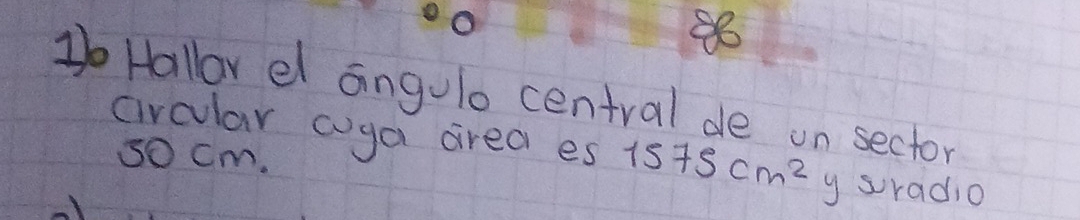 1) Hallar el ángulo central de un sector
circular cuya área es 1575 cm² y su radio
50 cm.